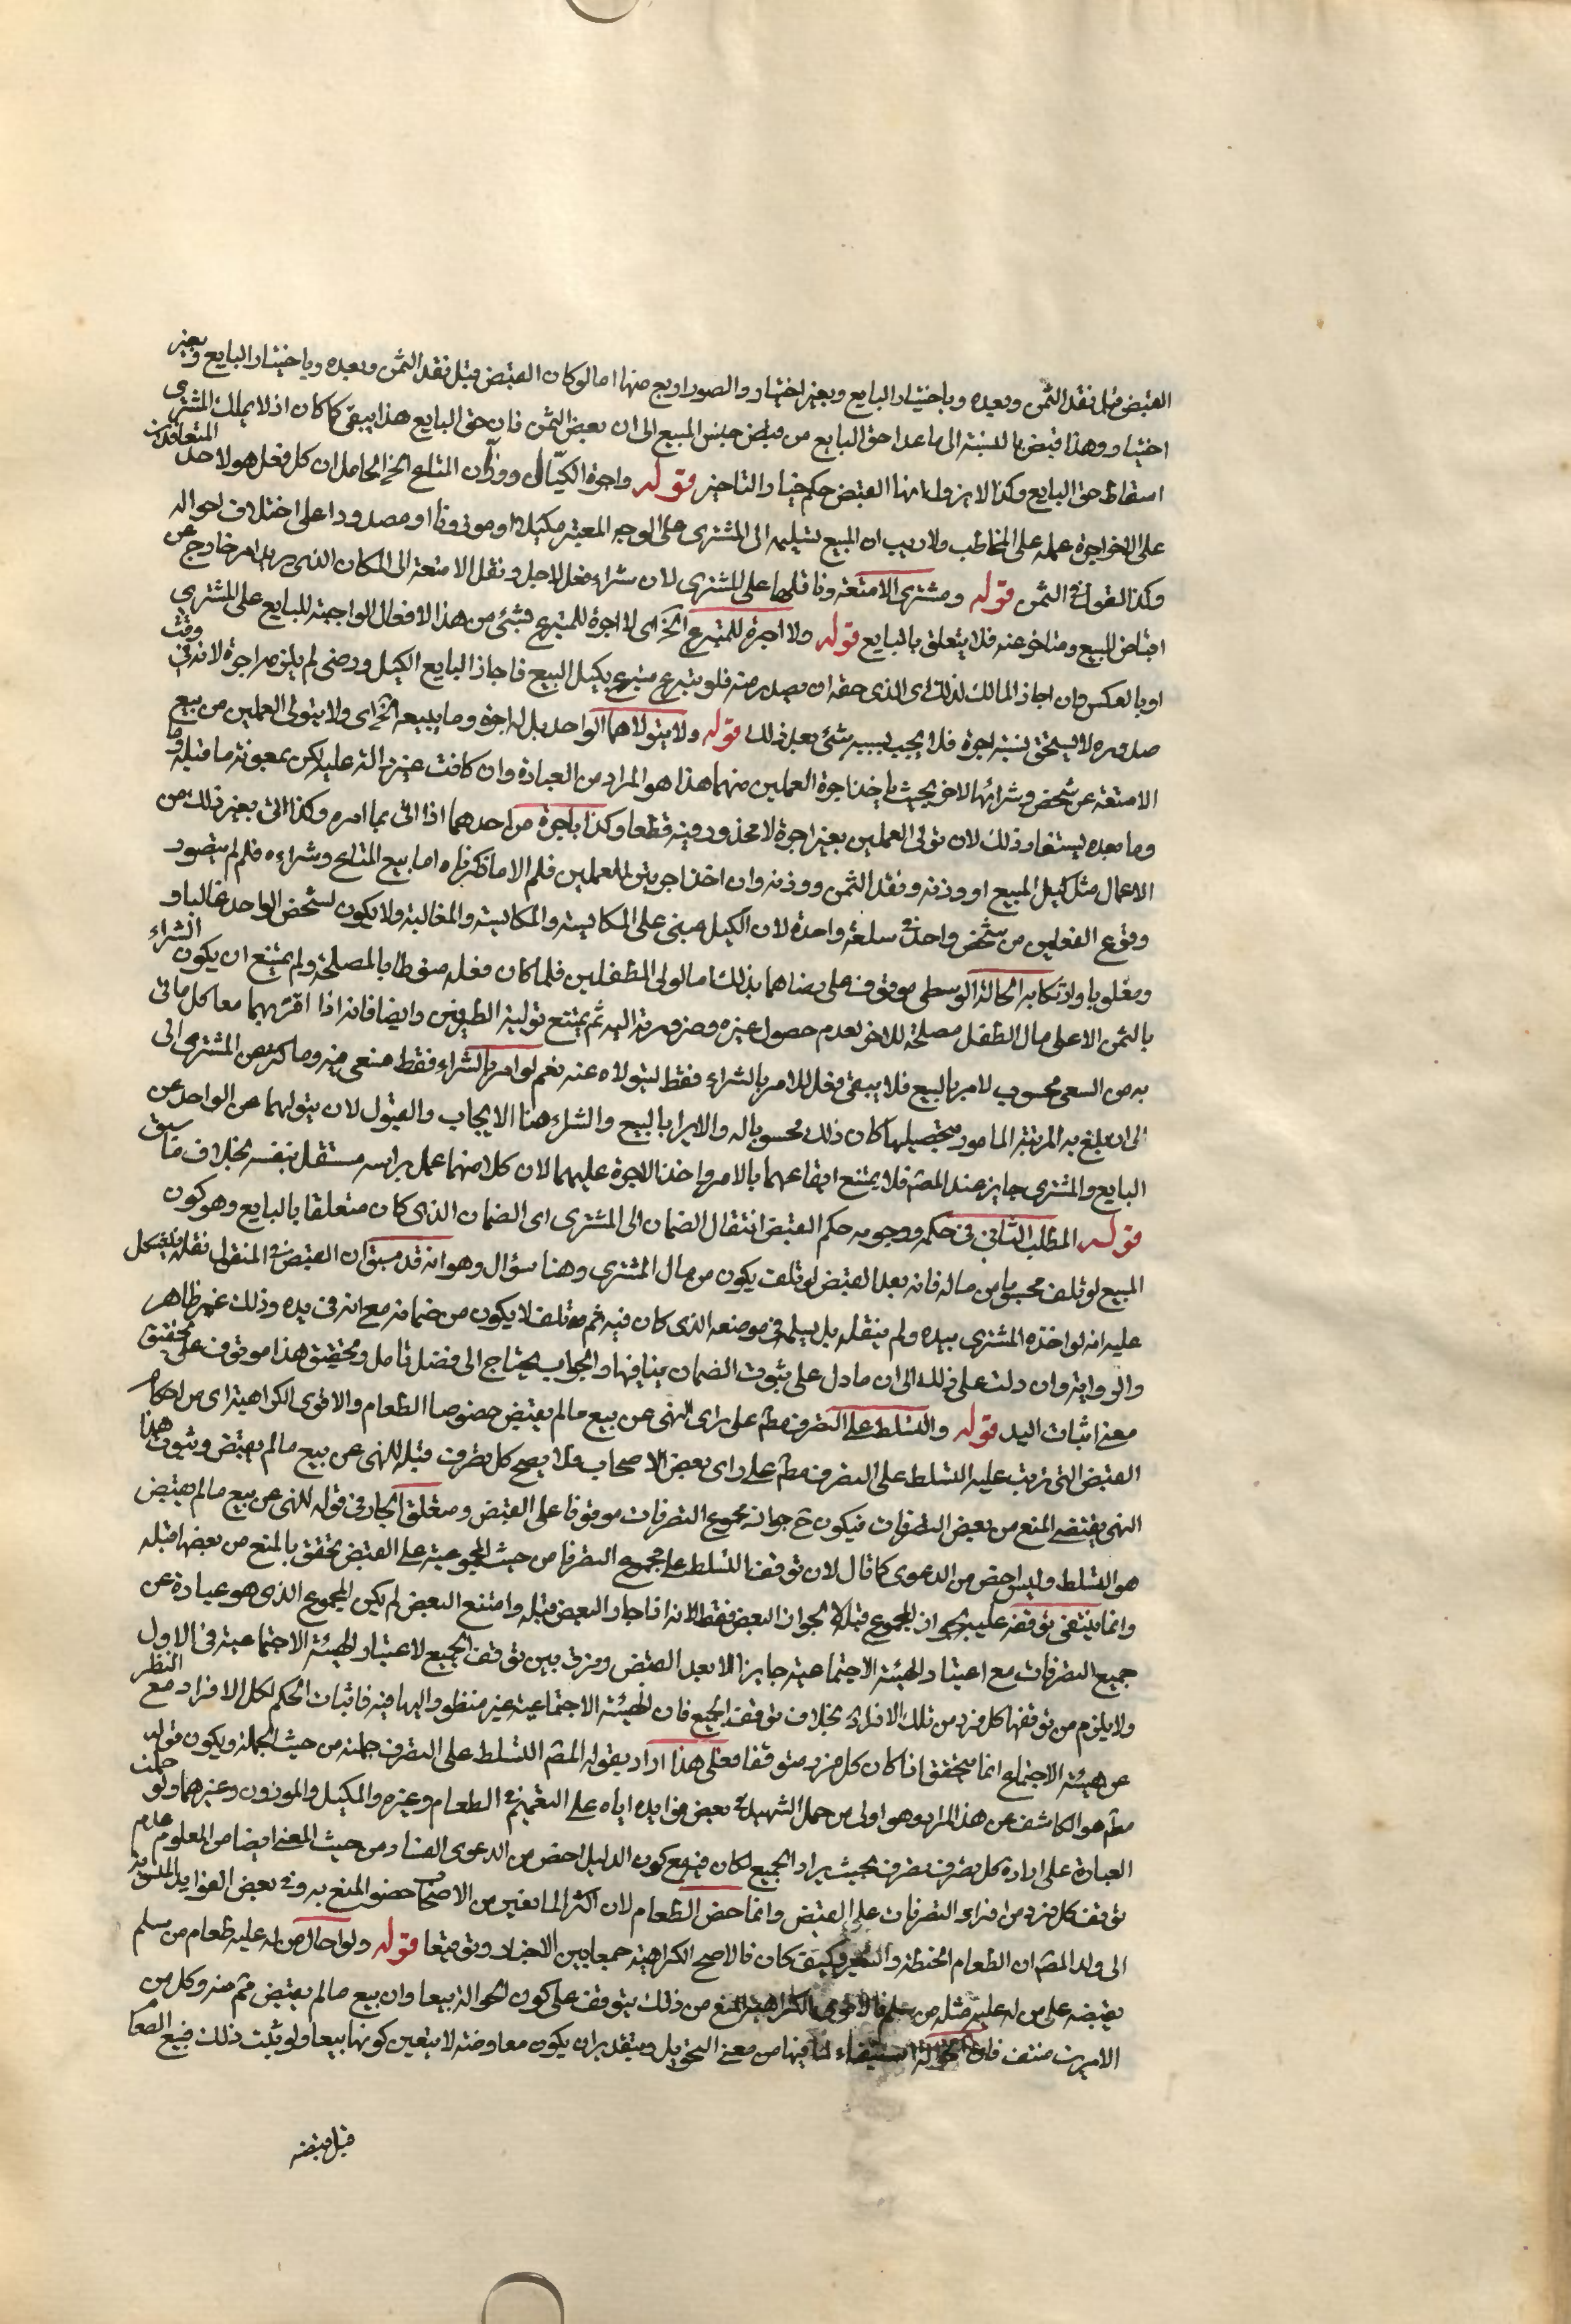 القبض قبل نقد الثمن وبعده وباختيار البايع وبغير اختيار والصور اربع منها امالو كان القبض قبل نقد الثمن وبعده وباختيار البايع وبغير
اختيار وهذا قبض بالنسبة الى ماعدا حق البايع من قبض جنس المبيع الى ان بعض الثمن فان حق البايع هذا يبقى كما كان اذ لا يملك المشترى
اسقاط حق البايع وكذا لا يزول بهذا القبض حكم خيار التاخير قوله واجرة الكيّال ووزّان المتاع الخ الحاصل ان كل فعل هو لاحد المتعاقدين
على الاخر اجرة عمله على المخاطب ولا ريب ان المبيع تسليمه الى المشترى على الوجه المعتبر مكيلا او موزونا او معدودا على اختلاف احواله
وكذا القول فى الثمن قوله ومشترى الامتعة وناقلها على المشترى لان شراء فعل لاجل ونقل الامتعة الى المكان الذى يريد امر خارج عن
اقباض المبيع ومتاخر عنه فلا يتعلق بالبايع قوله ولا اجرة للمتبرع الخ اى لا اجرة للمتبرع بشئ من هذا الافعال الواجبة للبايع على المشترى
او بالعكس وان اجاز المالك لذلك اى الذى حقه ان يصدر منه فلو تبرع متبرع بكيل المبيع فاجاز البايع الكيل ورضى لم يلزمه اجرة لانه فى وقت
صدوره لا يستحق بنيته اجرة فلا يجب بسببه شئ بعد ذلك قوله ولا يتولاهما الواحد بل له اجرة ما يبيعه الخ اى ولا يتولى العملين من بيع
الامتعة عن شخص وشرائها لاخر بحيث ياخذ اجرة العملين منهما هذا هو المراد من العبارة وان كانت غير دالة عليه لكن بمعونة ما قبله وما
وما بعده يستفاد وذلك لان تولى العملين بغير اجرة لا محذور فيه قطعا وكذا باجرة من احدهما اذا اتى بما امره وكذا اتى بغير ذلك من
الاعمال مثل كيل المبيع او وزنه ونقد الثمن ووزنه وان اخذ اجرتين للعملين فلم الا ما ذكرناه اما بيع المتاع وشراءه فلم لم يتصور
وقوع الفعلين من شخص واحد فى سلعة واحدة لان الكيل مبنى على المكايسة والمكاسبة والمغالبة ولا يكون لشخص الواحد غالبا و
ومغلوبا وارتكابه الحالة الوسطى موقوف على رضاهما بذلك امالولى الطفلين فلما كان فعله منوطا بالمصلحة ولم يمتنع ان يكون الشراء
بالثمن الاعلى مال الطفل مصلحة للاخر لعدم حصول غيره وضرورته اليه ثم يمتنع تولية الطرفين وايضا فانه اذا اقر بهما معا كل ما اتى
به من السعى محسوب لامر بالبيع فلا يبقى فعل للامر بالشراء فقط ليتولاه عنه نعم لو امر بالشراء فقط فسعى فيه وماكس من المشترى الى
الى ان بلغ به المرتبة المامور بتحصيلها كان ذلك محسوبا له والا يراد بالبيع والشراء هنا الايجاب والقبول لان يتوليهما عن الواحد عن
البايع والمشترى جايز عند المصـ فلا يمتنع ايقاعهما بالامر واخذ الاجرة عليهما لان كلا منهما عمل براسه مستقل بنفسه بخلاف ما سبق
قوله المطلب الثانى فى حكمه ووجوبه حكم القبض انتقال الضمان الى المشترى اى الضمان الذى كان متعلقا بالبايع وهو كون
المبيع لو تلف محسوبا من ماله فانه بعد القبض لو تلف يكون من مال المشترى وهنا سؤال وهو انه قد سبق ان القبض فى المنقول نقله فيشكل
عليه انه لو اخذه المشترى بيده ولم ينقله بل يسلمه فى موضعه الذى كان فيه ثم تلف لا يكون من ضمانه مع انه فى يده وذلك غير ظاهر
والرواية وان دلت على ذلك الى ان ما دل على ثبوت الضمان ينافيها والجواب يحتاج الى فضل تامل وتحقيق هذا موقوف على تحقيق
معنى اثبات اليد قوله والتسلط على التصرف مطـ على راى النهى عن بيع مالم يقبض خصوصا الطعام والاقوى الكراهية اى من احكام
القبض التى ترتب عليه التسلط على التصرف مطـ على راى بعض الاصحاب ولا يصح كل تصرف قبله للنهى عن بيع مالم يقبض وثبوت هذا
النهى يقتضى المنع من بعض التصرفات فيكون ح جواز مجموع التصرفات موقوفا على القبض ومتعلق الجار فى قوله للنهى عن بيع مالم يقبض
هو التسلط وليس اخص من الدعوى كما قال لان توقف التسلط على مجموع التصرفات من حيث المجموعية على القبض يتحقق بالمنع من بعضها قبله
وانما ينتفى توقفه عليه بجواز المجموع قبله لا بجواز البعض فقط لانه اذا جاز البعض قبله وامتنع البعض لم يكن المجموع الذى هو عبارة عن
جميع التصرفات مع اعتبار الهيئة الاجتماعية جايزا الا بعد القبض وفرق بين توقف الجميع لاعتبار الهيئة الاجتماعية فى الاول
ولا يلزم من توقفها كل فرد من تلك الافراد بخلاف توقف الجميع فان الهيئة الاجتماعية غير منظور اليها فيه فاثبات الحكم لكل الافراد مع النظر
عن هيئة الاجتماع انما يتحقق اذا كان كل فرد متوقفا فعلى هذا اراد بقوله المصـ التسلط على التصرف جملته من حيث الجملة ويكون قوله
مطـ هو الكاشف عن هذا المراد وهو اولى من حمل الشهيد فى بعض فوايده اياه على التعميم فى الطعام وغيره والمكيل والموزون وغيرهما ولو حملت
العبارة على ارادة كل تصرف تصرف بحيث يراد الجميع لكان فيه مع كون الدليل اخص من الدعوى الفساد من حيث المعنى ايضا من المعلوم عدم
توقف كل فرد من افراد التصرفات على القبض وانما خص الطعام لان اكثر المانعين من الاصحاب خصوا المنع به وفى بعض الفوايد المنسوبة
الى ولد المصـ ان الطعام الحنطة والشعير وكيف كان فالاصح الكراهية جمعا بين الاخبار وتوفيقا قوله ولو احال من له عليه طعام من سلم
بقبضه على من له عليه مثله من سلم فالاقوى الكراهية المنع من ذلك يتوقف على كون الحوالة بيعا وان بيع مالم يقبض ثم منه وكل من
الامرين منتف فان الحوالة استيفاء لما فيها من معنى التحويل وبتقدير ان يكون معاوضة لا يتعين كونها بيعا ولو ثبت ذلك فبيع الطعام
قبل قبضه